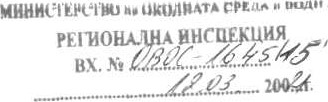 МИНИСТЕРСТВО на ОКОЛНАТА СРЕДА и ВОДИ
РЕГИОНАЛНА ИНСПЕКЦИЯ
ВХ. № ОВОС-1645/15
12.03 2002